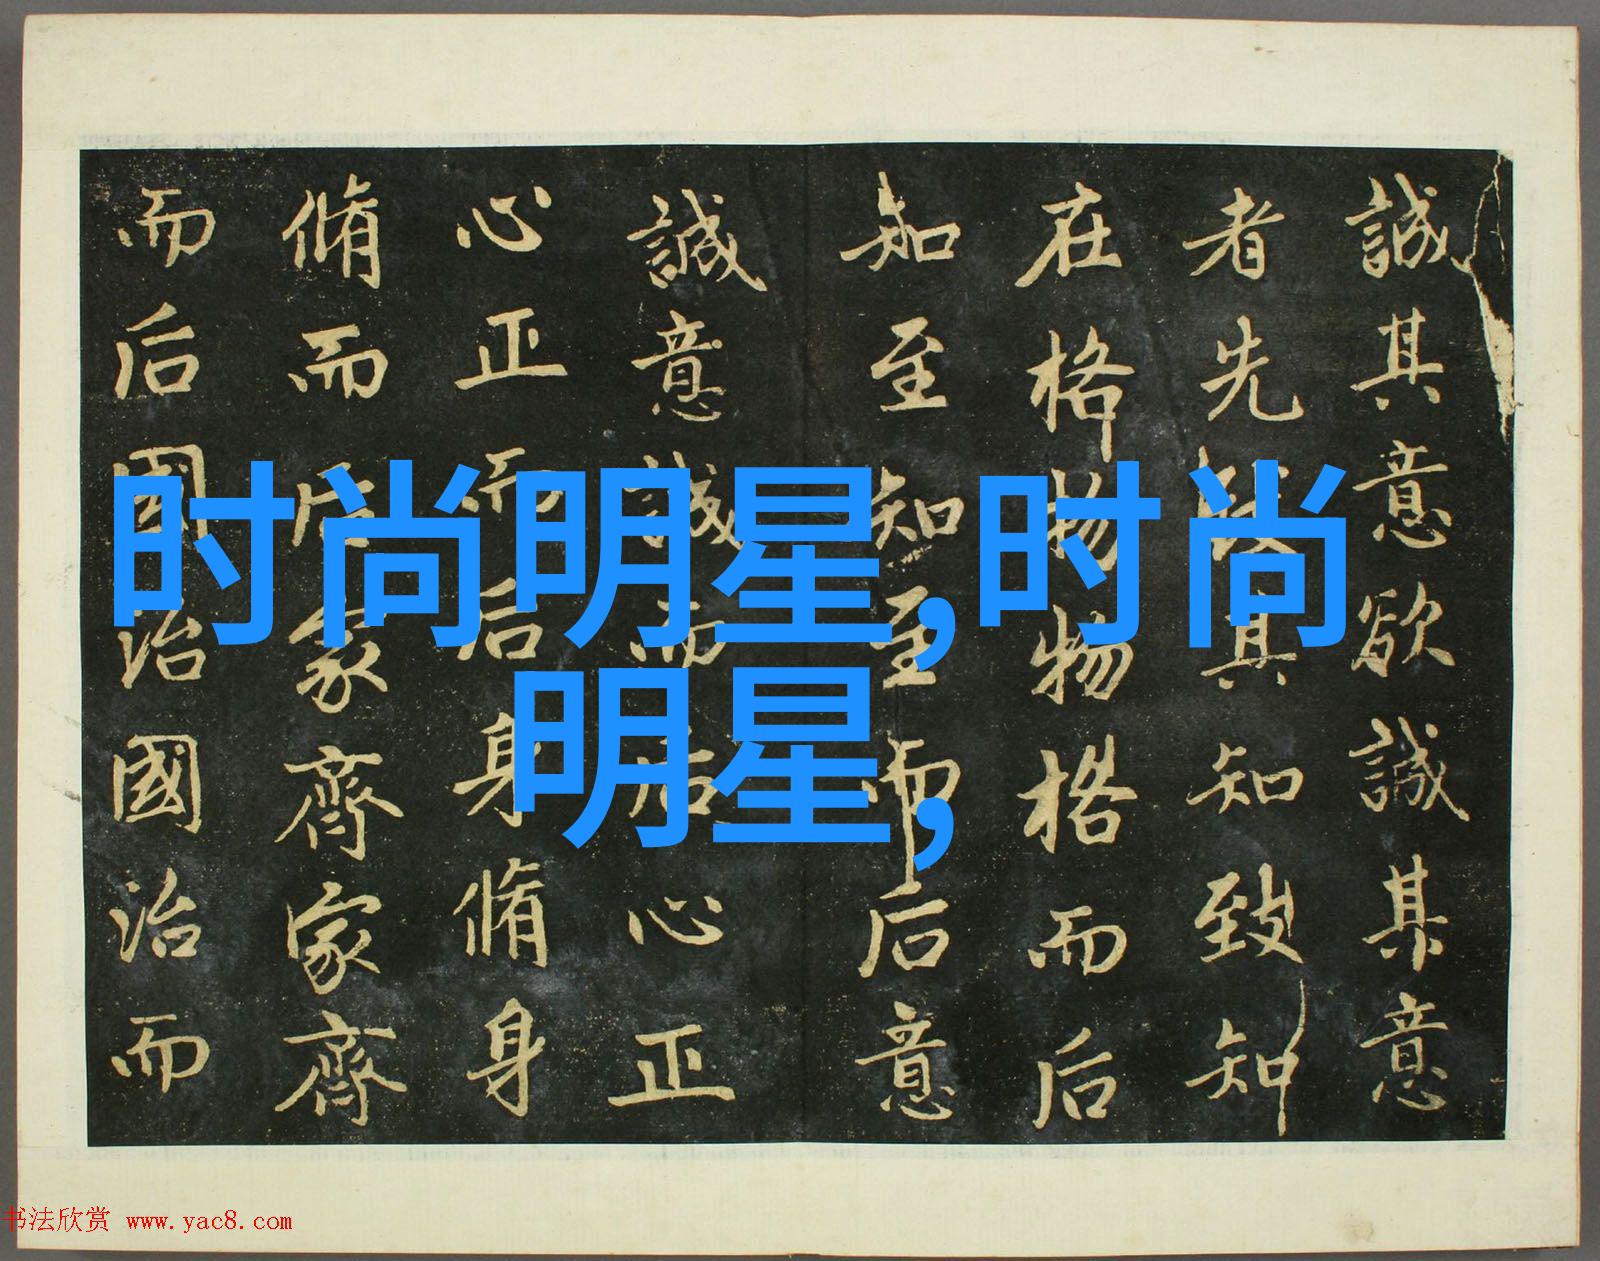 誠其意欲誠其意
者先致其知致知
在格物物格而后
知至知至而后意
誠意誠而后心正
心正而后身脩身
脩而后家齊家齊
而后國治國治而
时尚明星,时尚
明星,
书法欣赏 www.yac8.com